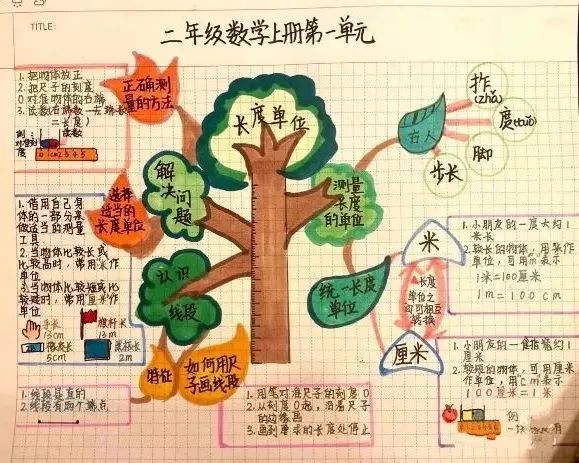 TITLE:
二年级数学上册第一单元
1. 把物体放正
2. 把尺子的刻度
0对准物体的左端
3. 读数右端数一去端长
二长度)
读数
刻
度
0 1cm 2 3 4 5
正确测
量的方法
长度单位
古人
拃
(zhǎ)
度(tuǒ)
脚
步长
解
决
问
题
测量
长度
的单位
选择
适当的
长度单位
1. 借用自己身
体的一部分来
做适当的测量
工具
2. 当物体比较长或
比较高时,常用米作
单位
3. 当物体比较短或比
较矮时,常用厘米作
单位
手长
13cm
旗杆
13m
5cm
黑板长
2m
认识
线段
统一长度
单位
米
长度
单位之
间可相互
转换
厘米
1. 小朋友的一度大约1
米长
2. 较长的物体,用米作
单位,可用m表示
1米=100厘米
1m=100cm
1. 小朋友的一食指宽约1
厘米
2. 较短的物体,可用厘米
作单位,用cm表示
100厘米=1米
例
一块
特征
如何用尺
子画线段
1. 线段是直的
2. 线段有两个端点
1. 用笔对准尺子的刻度0
2. 从刻度0起,沿着尺子
的边缘画
3. 画到要求的长度处停止